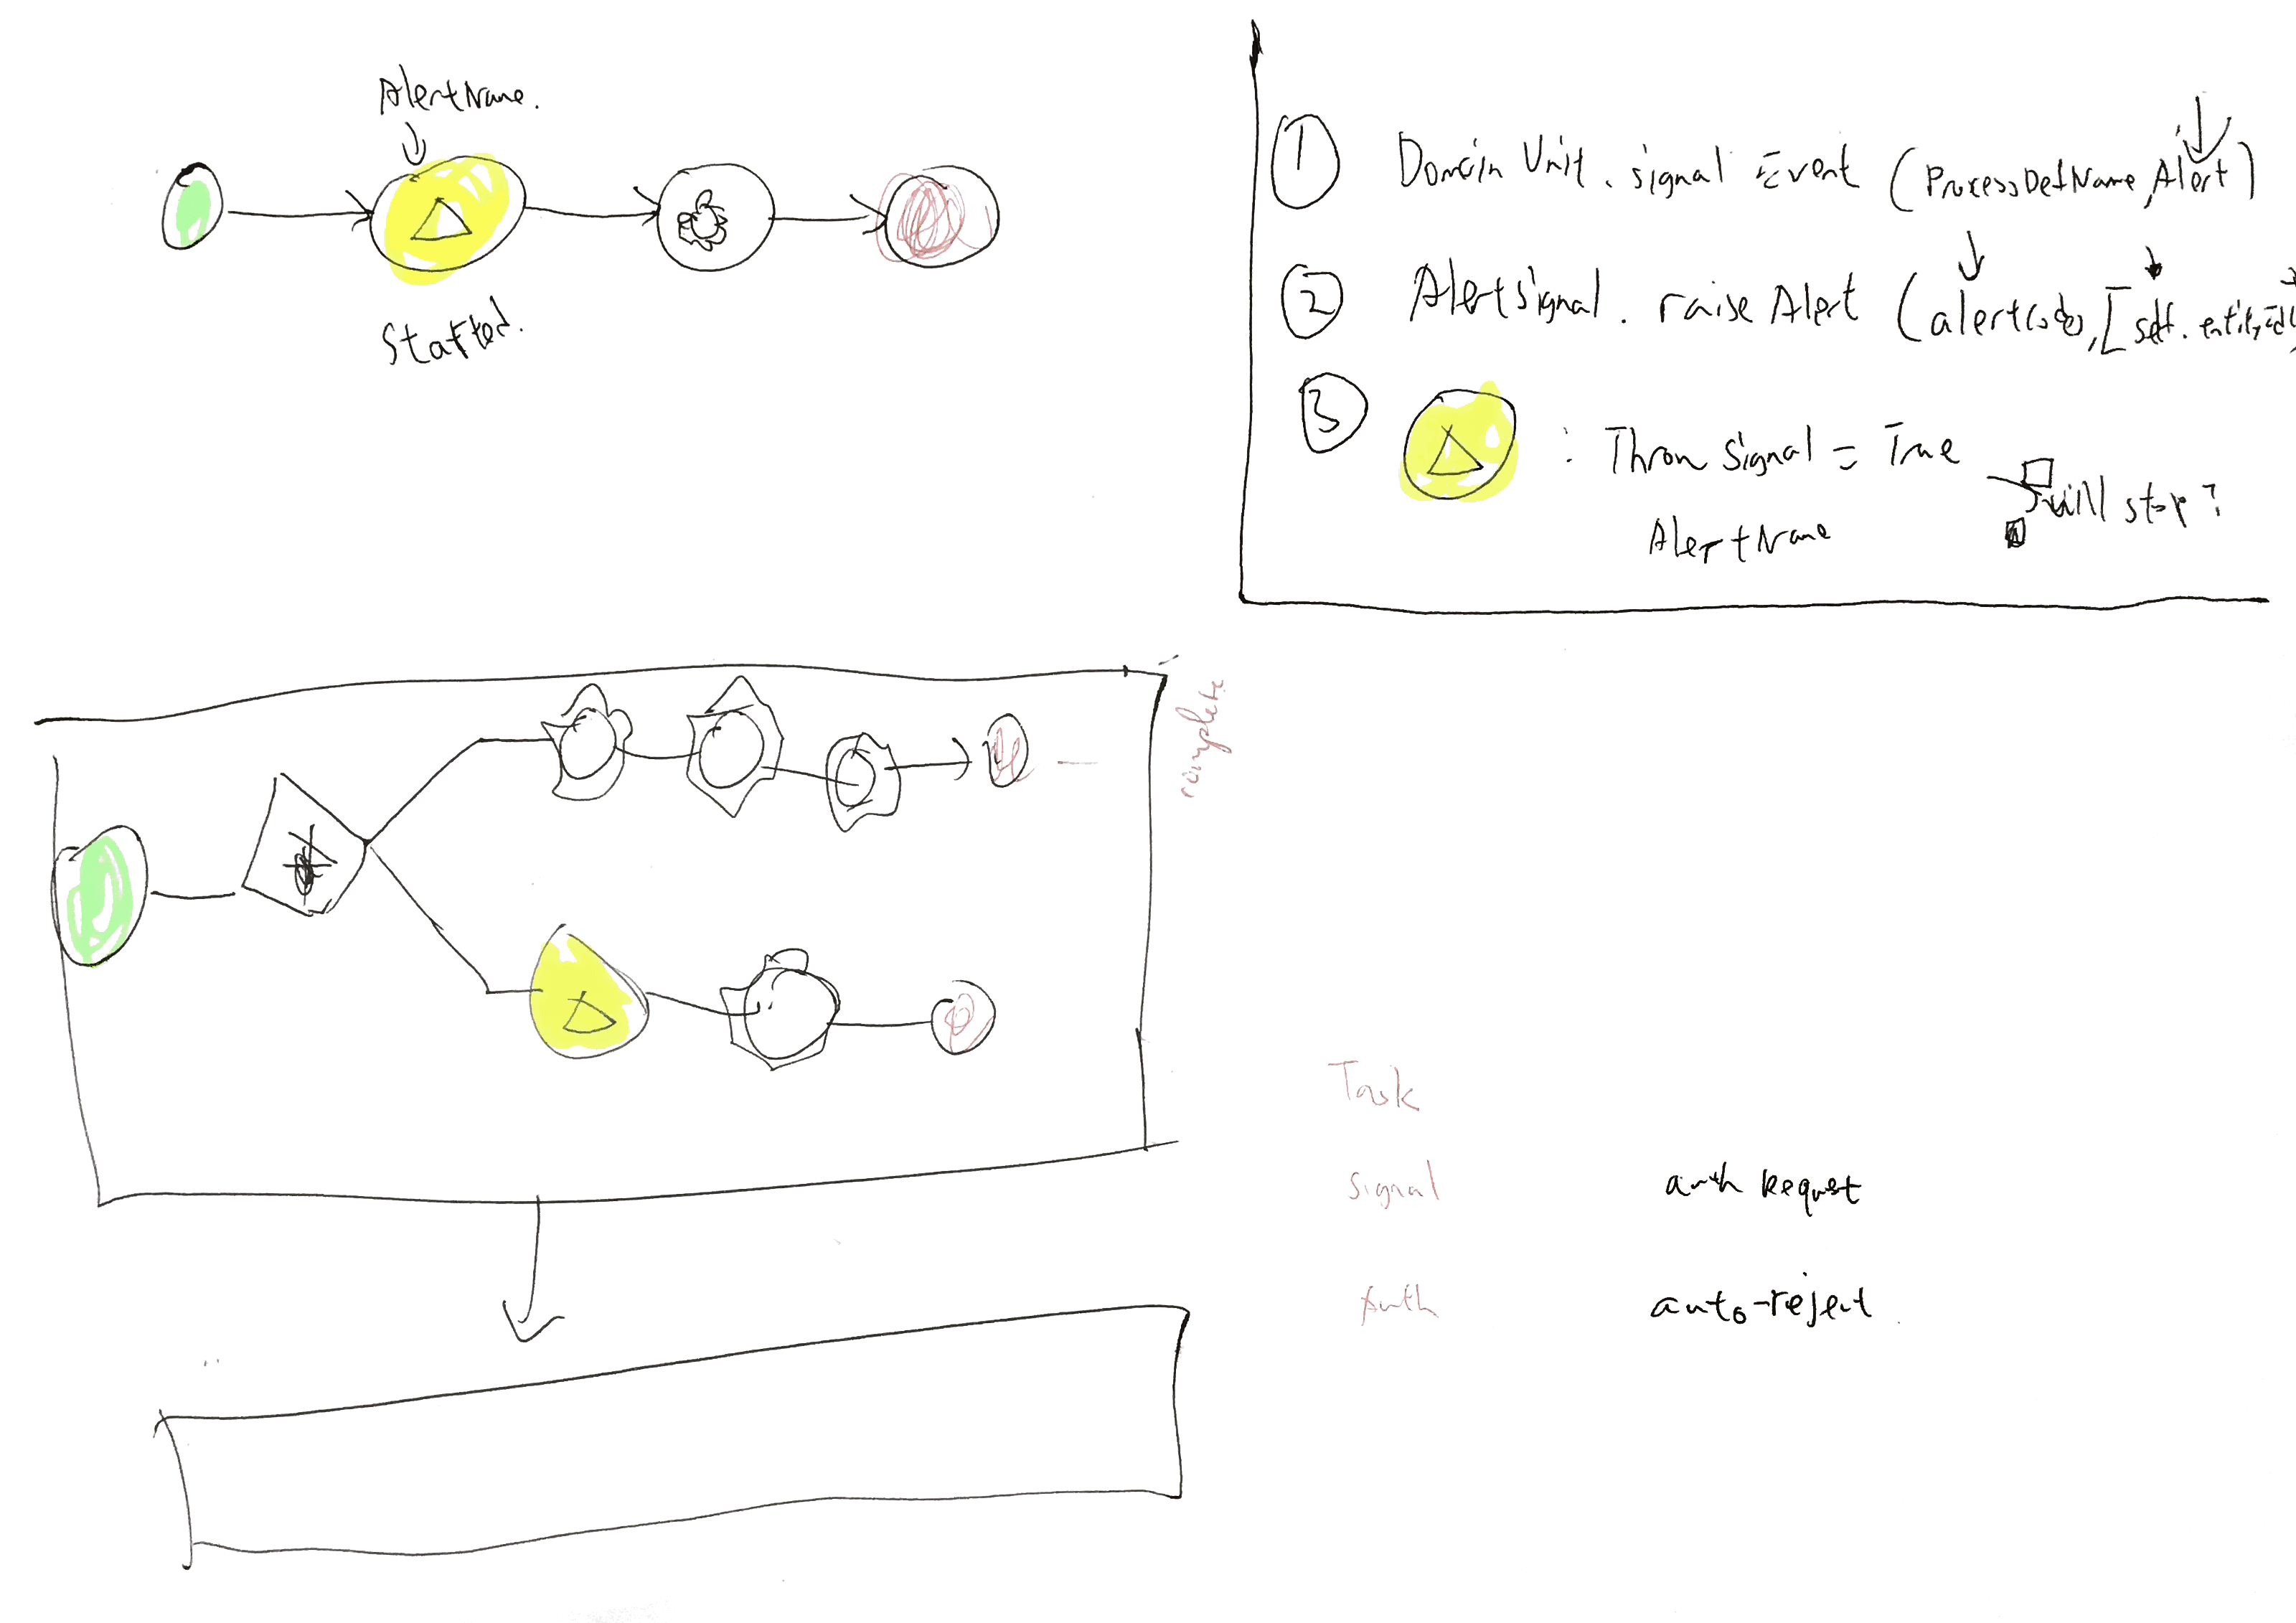 AlertName.
Started.
1 Domain Unit. signal Event (ProcessDefName, Alert)
2 Alertsignal. raise Alert (alertCode, [self. entity
3 : Thron Signal = True
will stop?
AlertName
complete
Task
Signal auth Request
Auth auto-reject.